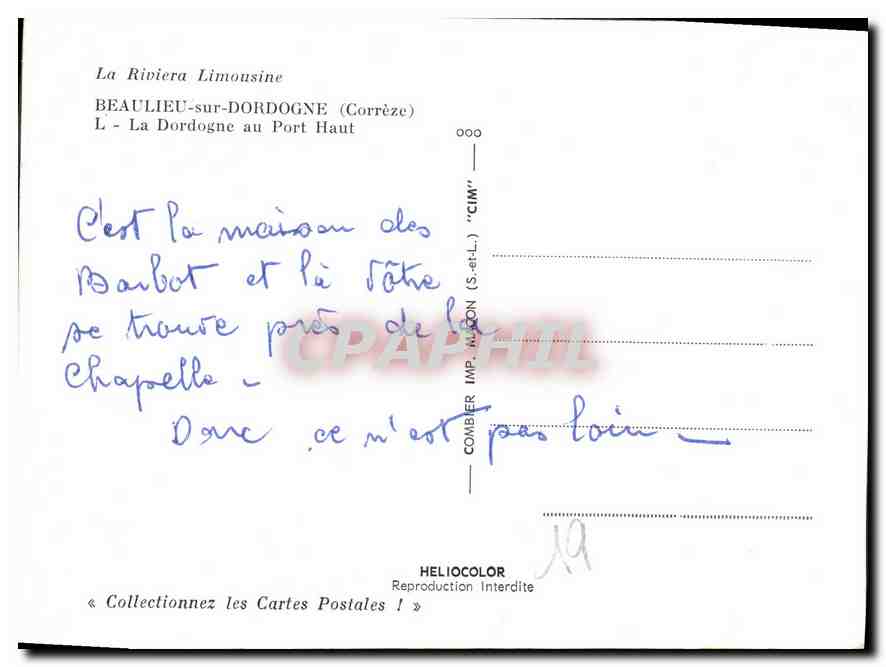 La Riviera Limousine
BEAULIEU-sur-DORDOGNE (Corrèze)
L - La Dordogne au Port Haut
C'est la maison des
Barbot et là vôtre
se trouve près de la
Chapelle -
Donc ce n'est pas loin -
COMBIER IMP. MACON (S.-et-L.) "CIM"
CPAPHIL
19
HELIOCOLOR
Reproduction Interdite
« Collectionnez les Cartes Postales ! »